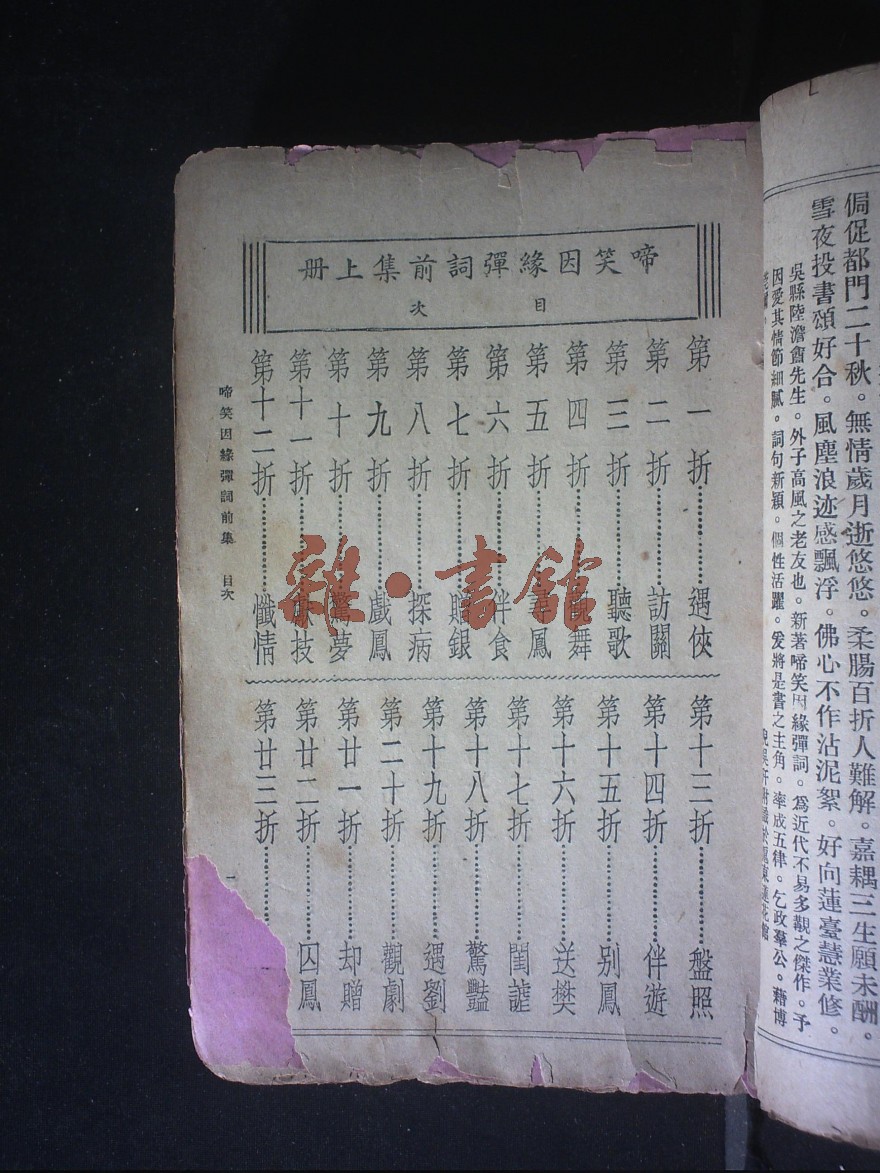 侷促都門二十秋。無情歲月逝悠悠。柔腸百折人難解。嘉耦三生願未酬。
雪夜投書頌好合。風塵浪迹感飄浮。佛心不作沾泥絮。好向蓮臺慧業修。
吳縣陸澹盦先生。外子高風之老友也。新著啼笑因緣彈詞。爲近代不易多覯之傑作。予
因愛其情節細膩。詞句新穎。個性活躍。爰將是書之主角。率成五律。乞政羣公。藉博
啼笑因緣彈詞前集上册
目次
第一折 遇俠
第二折 訪關
第三折 聽歌
第四折 觀舞
第五折 鳳
第六折 伴食
第七折 贈銀
第八折 探病
第九折 戲鳳
第十折 驚夢
第十一折 獻技
第十二折 懺情
第十三折 盤照
第十四折 伴遊
第十五折 别鳳
第十六折 送樊
第十七折 閨謔
第十八折 驚豔
第十九折 遇劉
第二十折 觀劇
第廿一折 却贈
第廿二折 囚鳳
第廿三折
啼笑因緣彈詞前集 目次
一
雜·書館